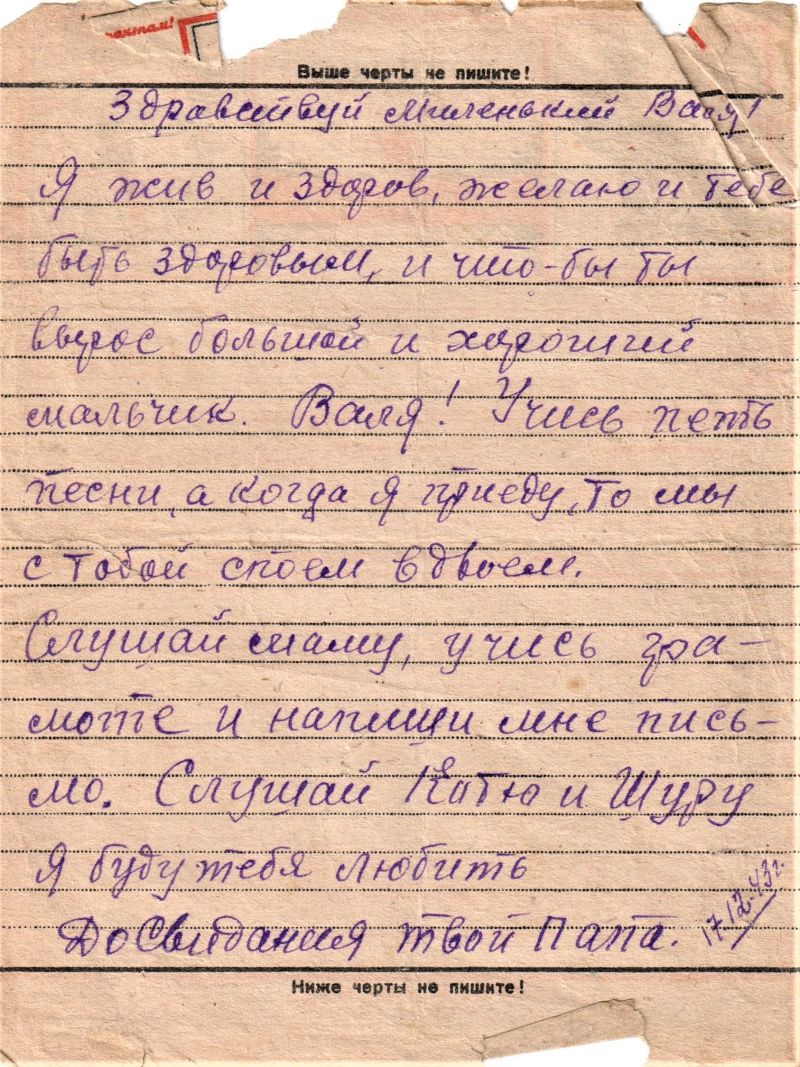 антам!
Выше черты не пишите!
Здравствуй Миленький Валя!
Я жив и здоров, желаю и тебе
быть здоровым, и что-бы ты
вырос большой и хороший
мальчик. Валя! Учись петь
песни, а когда я приеду, то мы
с тобой споем вдвоем.
Слушай маму, учись гра-
моте и напиши мне пись-
мо. Слушай Катю и Шуру
Я буду тебя любить
До Свидания твой Папа.
17.12.43 г.
Ниже черты не пишите!